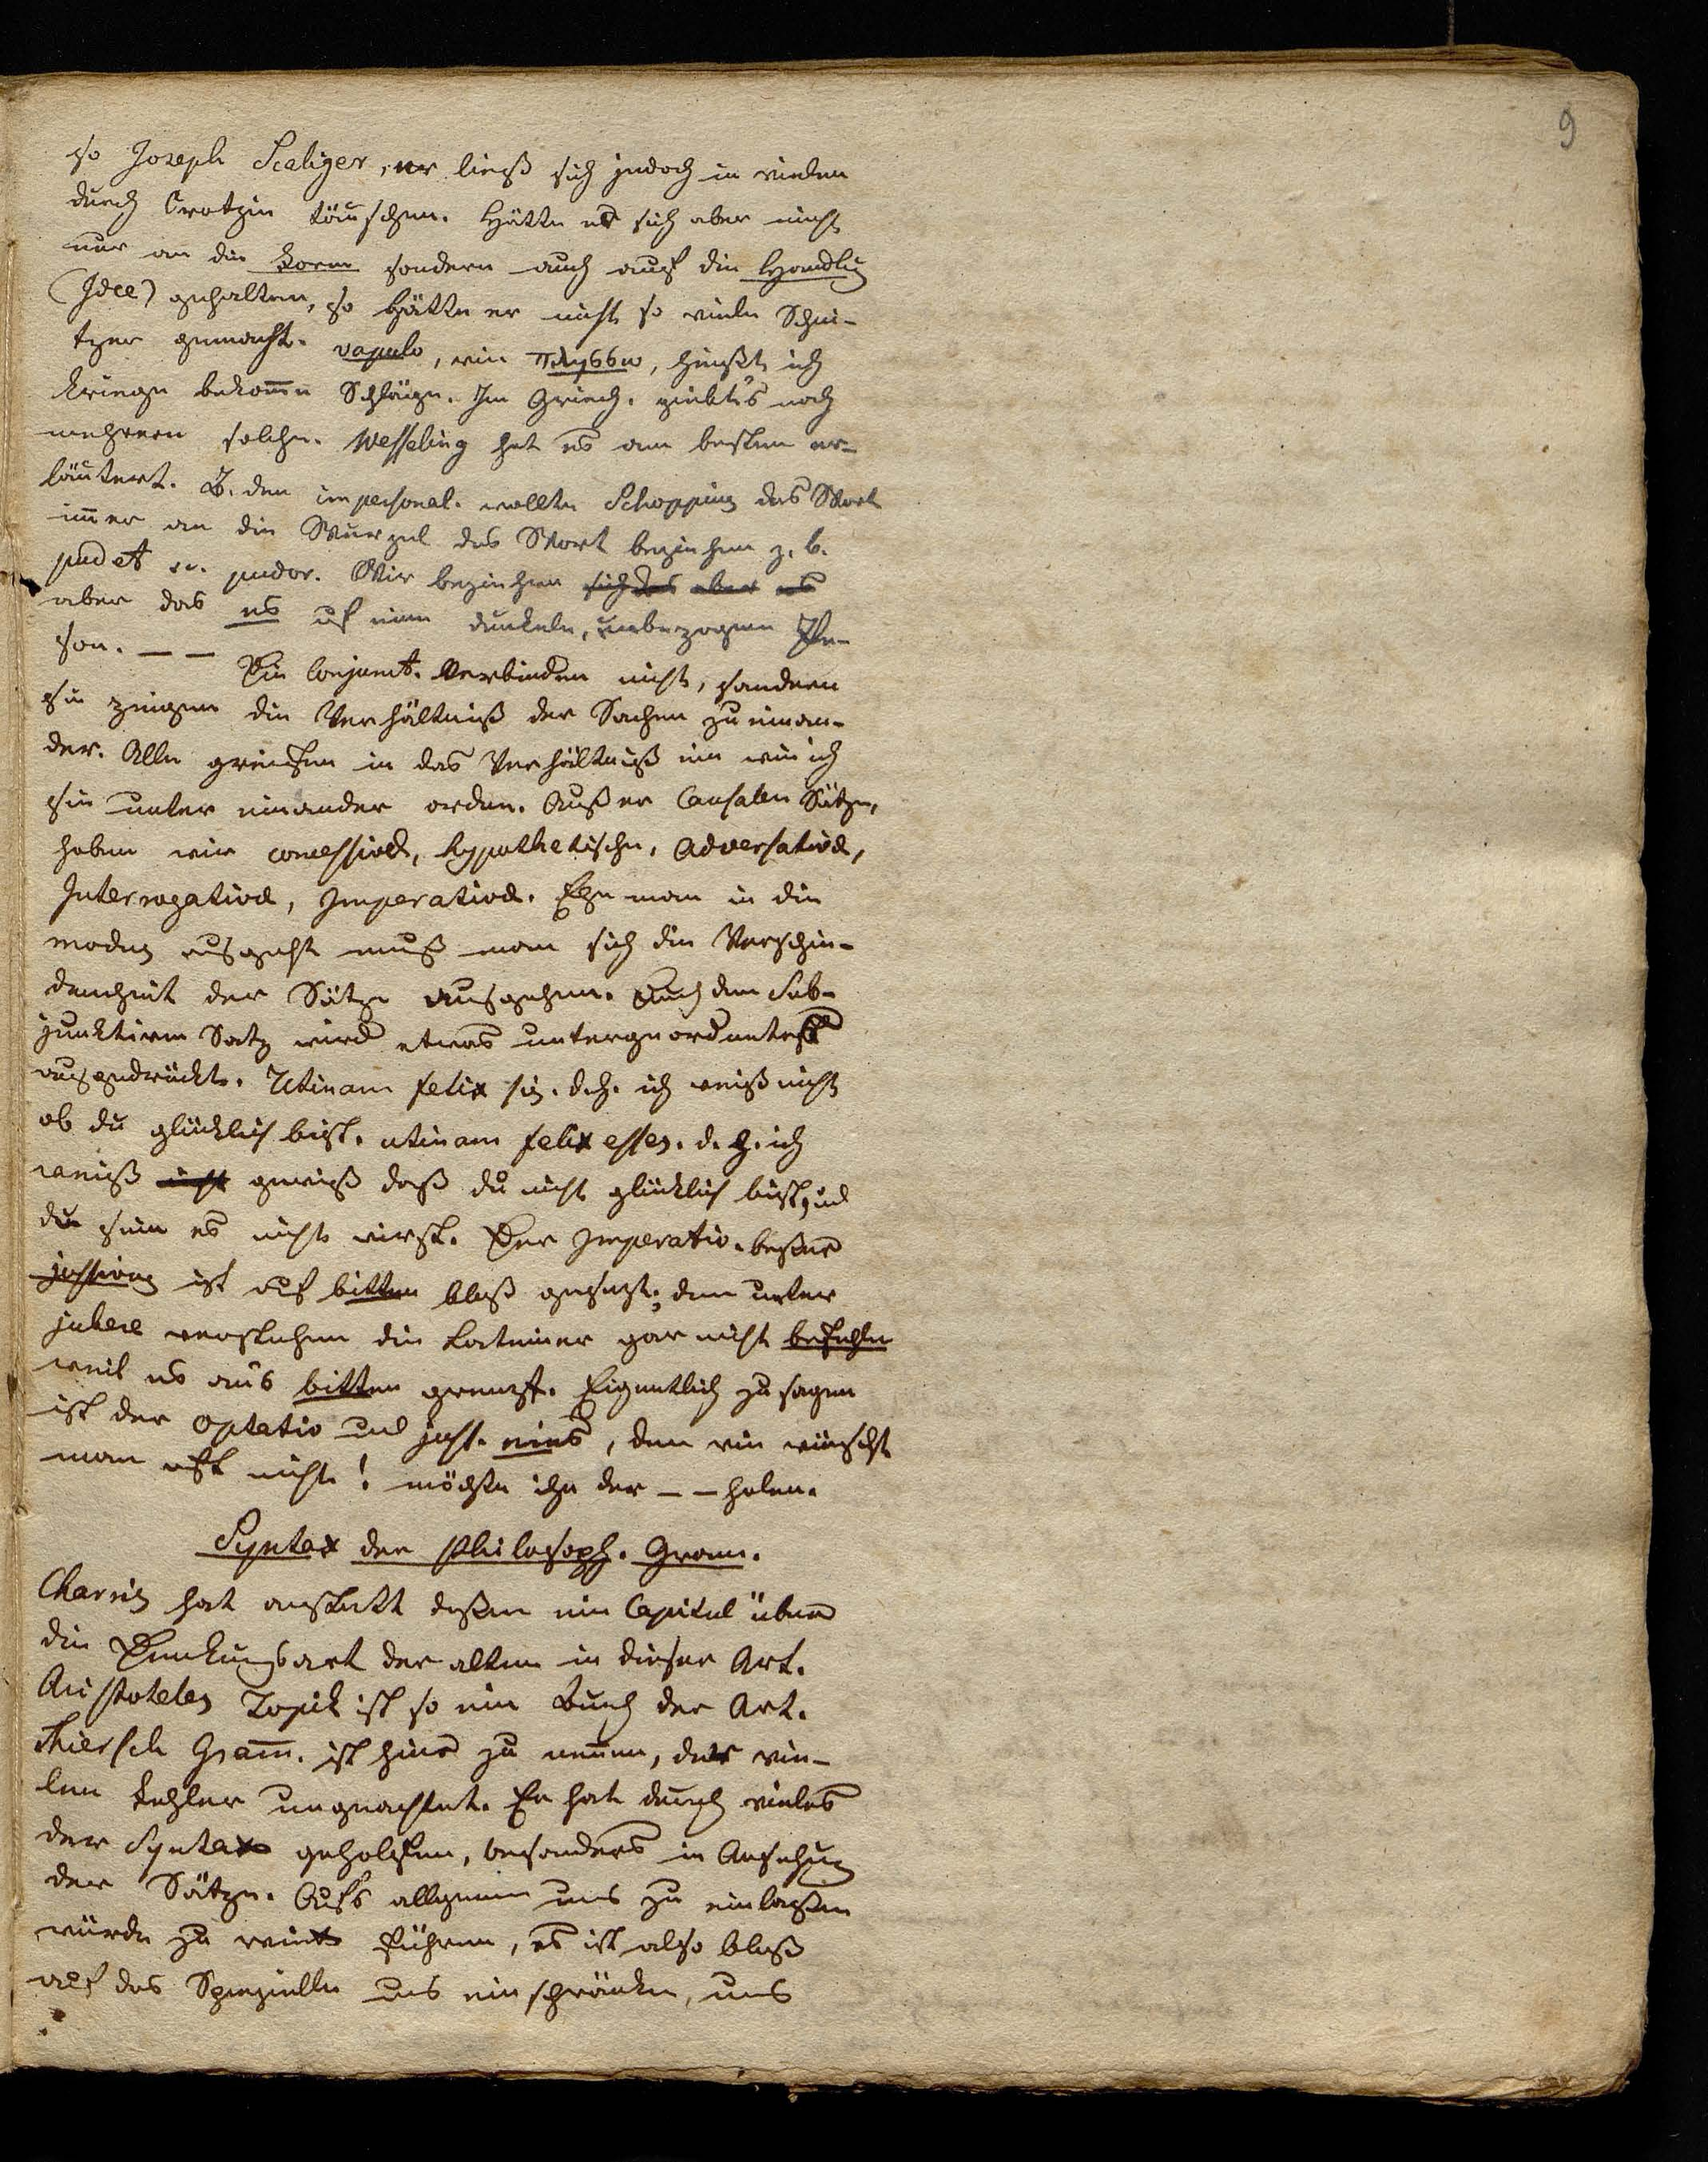 9
so Joseph Scaliger, er ließ sich jedoch in vielem
durch Crotzin täuschen. Hätte er sich aber nicht
nur an die Form sondern auch auf die Handlug
(Idee) gehalten, so hätte er nicht so viele Schni-
tzer gemacht. vapulo, wie πλησσω, heißt ich
kriege bekom̄e Schläge. Im Griech. giebt's noch
mehrere solche. Wesseling hat es am besten er-
läutert. B. den impersonal. wollte Schopping das Wort
im̄er an die Wurzel des Wort beziehen z. b.
pudet sc. pudor. Wir beziehen sich das aber es
aber das es uf eine dunkele, unbezogene Per-
son. — — Die Conjunct. verbinden nicht, sondern
sie zeigen die Verhältniß der Sachen zu einan-
der. Alle greifen in das Verhältniß ein wie ich
sie unter einander orden. Außer Causalen Sätze,
haben wir concessive, hypothetische, Adversative,
Interrogative, Imperative. Ehe man in die
modus eusgeht muß man sich die Verschie-
denheit der Sätze ausgehen. Durch den Sub-
junktiven Satz wird etwas untergeordnetes
ausgedrückt. Utinam felix sis. d. h. ich weiß nicht
ob du glücklich bist. utinam felix esses. d. h. ich
weiß nicht gewiß daß du nicht glücklich bist, und
du sein es nicht wirst. Der Imperativ. beßer
jussivus ist auf bitten bloß gesezt; den unter
jubere verstehen die Lateiner gar nicht befehlen
weil es ans bitten grenzt. Eigentlich zu sagen
ist der Optativ und juss. eins, den wie wünscht
man oft nicht! möchte ihn der — — holen.
Syntax der philosoph. Gram.
Charris hat anstatt deßen ein Capitel über
die Denkungsart der alten in dieser Art.
Aristoteles Topik ist so ein Buch der Art.
Thiersch Gram̄. ist hier zu nen̄en, der vie-
len Fehler ungeachtet. Er hat durch vieles
der Syntax geholfen, besonders in Ansehug
der Sätze. Aufs allgemein uns zu einlaßen
würde zu weit führen, es ist also bloß
auf das Spezielle uns einschränken, uns